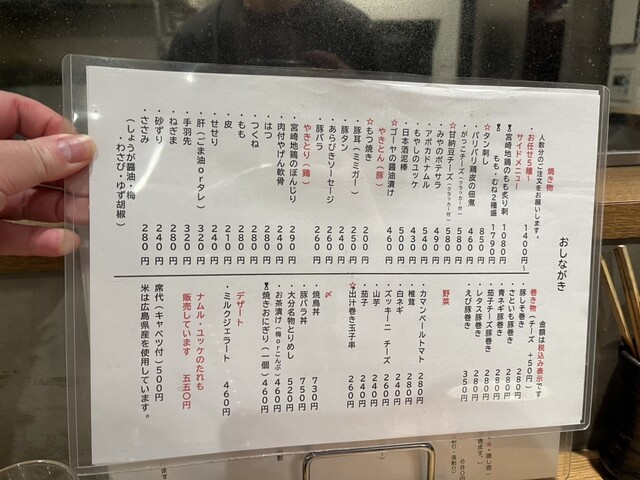 おしながき
焼き物
人数分のご注文をお願いします。
お任せ5種〜 1400円〜
サイドメニュー
宮崎地鶏のもも炙り刺 1080円
もも・むね2種盛 1790円
☆タン刺し 850円
パリパリ鶏皮の佃煮 460円
がっこチーズ(クラッカー付) 580円
☆甘納豆チーズ(クラッカー付) 580円
みやのポテサラ 490円
アボカドナムル 540円
もやしのユッケ 430円
日本酒泥棒 500円
☆ゴーヤの醤油漬け 460円
やきとん(豚)
☆もつ焼き 200円
豚耳(ミミガー) 250円
豚タン 280円
あらびきソーセージ 260円
豚バラ 260円
やきとり(鶏)
宮崎地鶏のぼんじり 290円
肉付やげん軟骨 280円
はつ 280円
つくね 280円
もも 280円
皮 210円
せせり 240円
肝(ごま油orタレ) 320円
手羽先 320円
ねぎま 280円
砂ずり 240円
ささみ 280円
(しょうが醤油・梅
・わさび・ゆず胡椒)
金額は税込み表示です
巻き物(チーズ +50円)
豚しそ巻き 280円
さといも豚巻き 280円
青ネギ豚巻き 280円
茄子チーズ豚巻き 280円
レタス豚巻き 280円
えび豚巻き 350円
野菜
カマンベールトマト 280円
椎茸 280円
白ネギ 240円
ズッキーニ チーズ 260円
山芋 240円
茄子 240円
☆出汁巻き玉子串 260円
〆
焼鳥丼 730円
豚バラ丼 750円
大分名物とりめし 520円
お茶漬け(梅orこんぶ) 460円
焼きおにぎり(一個) 460円
デザート
ミルクジェラート 460円
ナムル・ユッケのたれも
販売しています 五五〇円
席代(キャベツ付)500円
米は広島県産を使用しています。